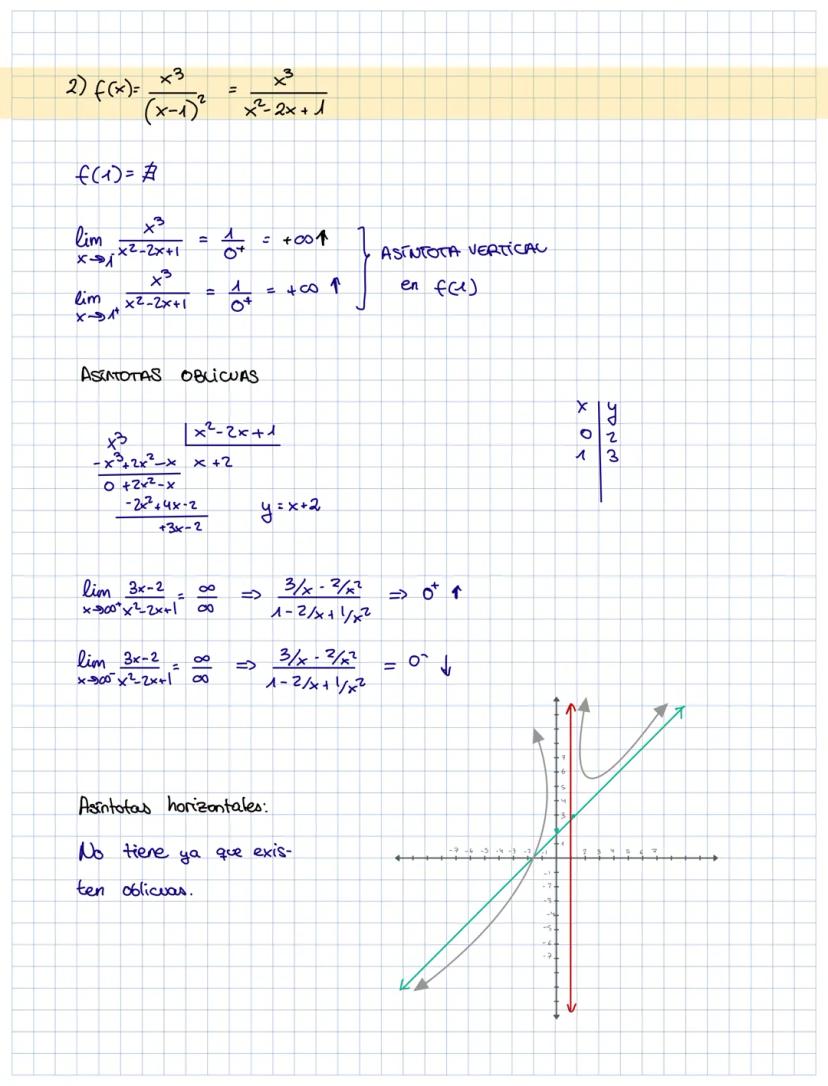 2) f(x)= x³/(x-1)² = x³/x²-2x+1
f(1)= ∄
lim x→1⁻ x³/x²-2x+1 = 1/0⁺ = +∞↑
lim x→1⁺ x³/x²-2x+1 = 1/0⁺ = +∞ ↑
} ASÍNTOTA VERTICAL
en f(1)
ASÍNTOTAS OBLICUAS
x | y
0 | 2
1 | 3
x³ | x²-2x+1
-x³+2x²-x x+2
0 +2x²-x
-2x²+4x-2 y=x+2
+3x-2
lim x→∞⁺ 3x-2/x²-2x+1 = ∞/∞ ⇒ 3/x - 2/x² / 1-2/x+1/x² ⇒ 0⁺ ↑
lim x→∞⁻ 3x-2/x²-2x+1 = ∞/∞ ⇒ 3/x - 2/x² / 1-2/x+1/x² = 0⁻ ↓
Asíntotas horizontales:
No tiene ya que exis-
ten oblicuas.